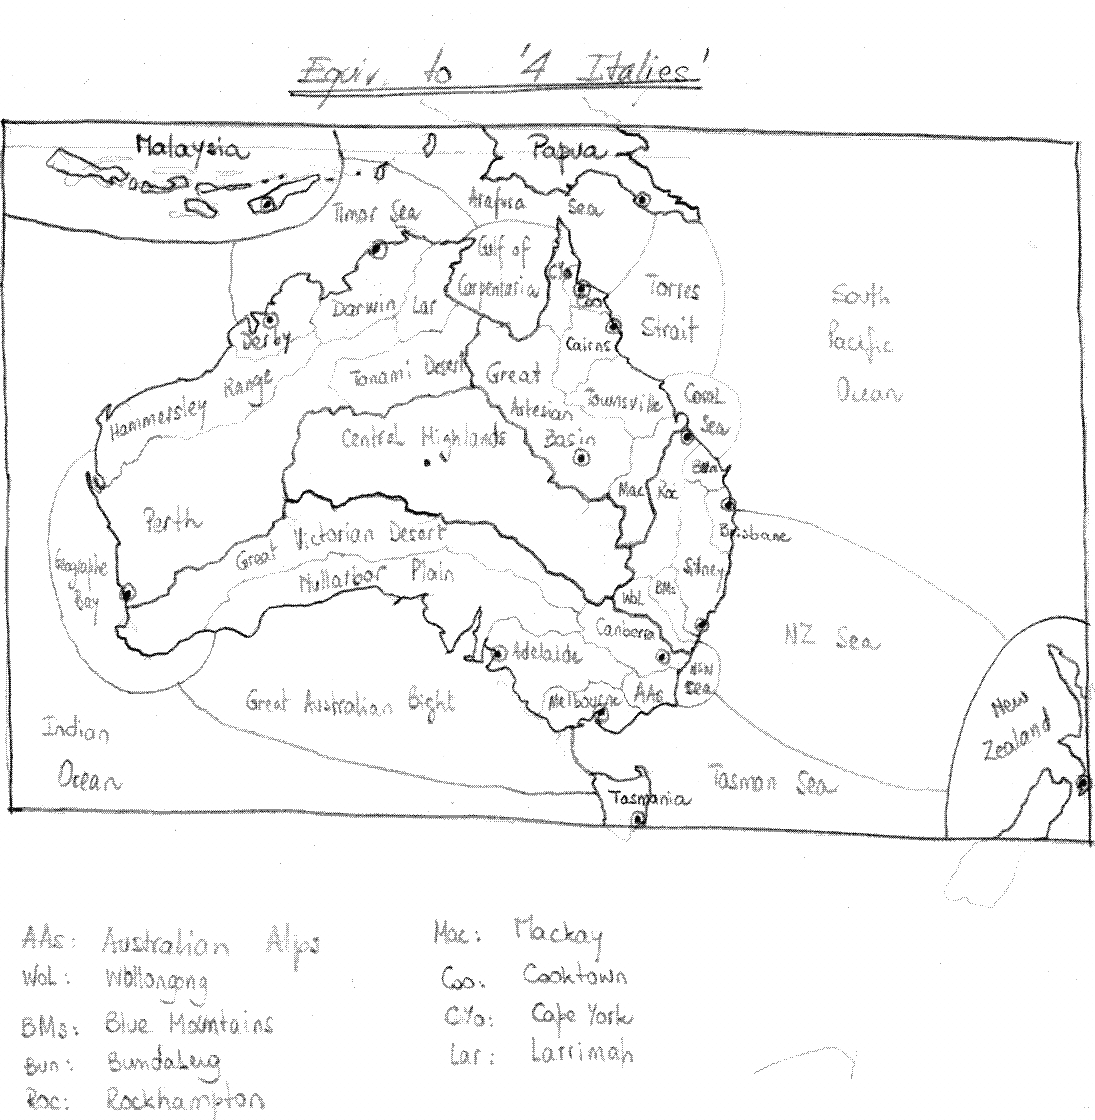 Equiv. to '4 Italies'
Malaysia
Papua
Timor Sea
Arafura Sea
Gulf of
Carpentaria
CYo
Coo
Torres
Strait
South
Pacific
Ocean
Darwin
Lar
Derby
Cairns
Tanami Desert
Great
Artesian
Basin
Hammersley Range
Townsville
Coral
Sea
Central Highlands
Bun
Mac
Roc
Perth
Great Victorian Desert
Brisbane
Geographe
Bay
Nullarbor Plain
Sidney
BMs
Wol
Canberra
NZ Sea
Adelaide
NSW
Sea
AAs
Melbourne
Great Australian Bight
New
Zealand
Indian
Ocean
Tasman Sea
Tasmania
AAs: Australian Alps
Wol: Wollongong
BMs: Blue Mountains
Bun: Bundaberg
Roc: Rockhampton
Mac: Mackay
Coo: Cooktown
CYo: Cape York
Lar: Larrimah